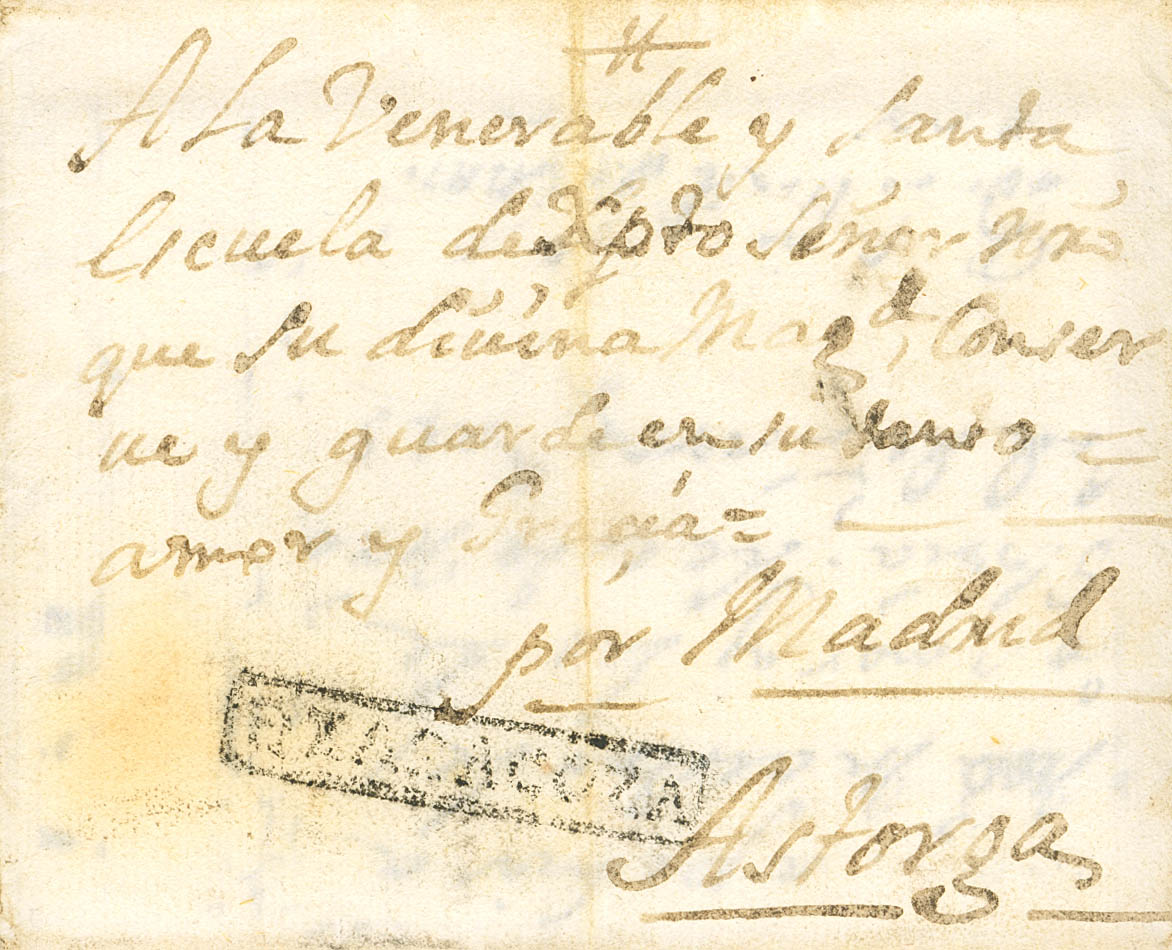 A La Venerable y Santa
Escuela de Xpto Señor nr̃o
que su divina Mag.d Conser
ve y guarde en su santo =
amor y Gracia =
por Madrid
ZARAGOZA
Astorga